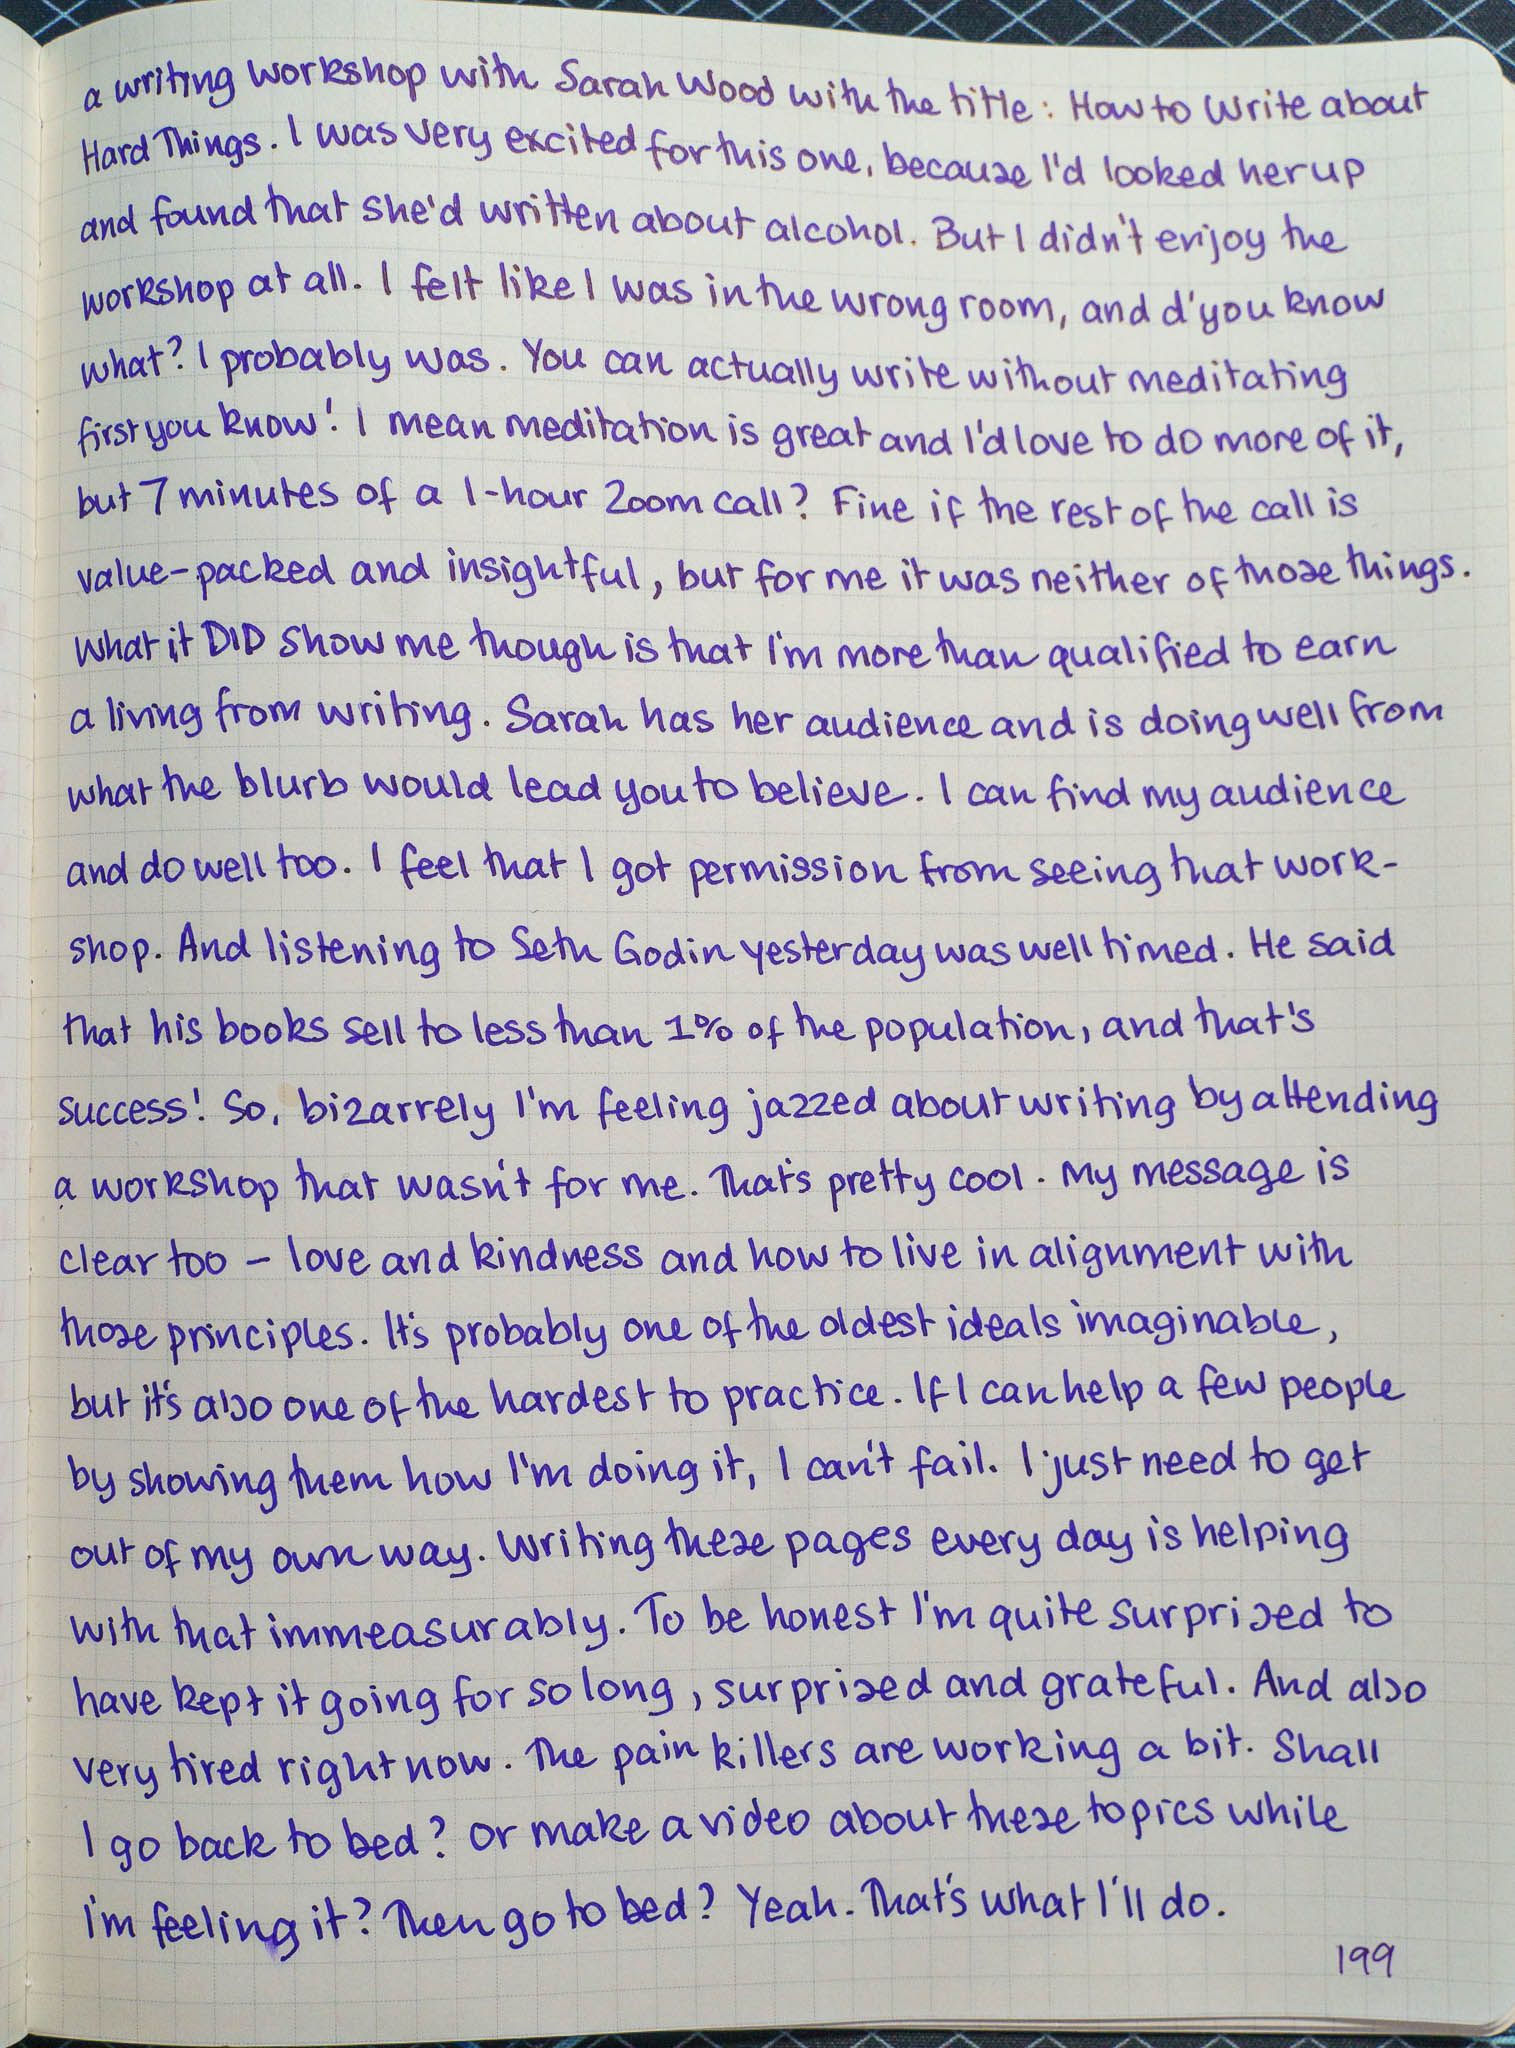 a writing workshop with Sarah Wood with the title: How to Write about
Hard Things. I was very excited for this one, because I'd looked her up
and found that she'd written about alcohol. But I didn't enjoy the
workshop at all. I felt like I was in the wrong room, and d'you know
what? I probably was. You can actually write without meditating
first you know! I mean meditation is great and I'd love to do more of it,
but 7 minutes of a 1-hour Zoom call? Fine if the rest of the call is
value-packed and insightful, but for me it was neither of those things.
What it DID show me though is that I'm more than qualified to earn
a living from writing. Sarah has her audience and is doing well from
what the blurb would lead you to believe. I can find my audience
and do well too. I feel that I got permission from seeing that work-
shop. And listening to Seth Godin yesterday was well timed. He said
that his books sell to less than 1% of the population, and that's
success! So, bizarrely I'm feeling jazzed about writing by attending
a workshop that wasn't for me. That's pretty cool. My message is
clear too – love and kindness and how to live in alignment with
those principles. It's probably one of the oldest ideals imaginable,
but it's also one of the hardest to practice. If I can help a few people
by showing them how I'm doing it, I can't fail. I just need to get
out of my own way. Writing these pages every day is helping
with that immeasurably. To be honest I'm quite surprised to
have kept it going for so long, surprised and grateful. And also
very tired right now. The pain killers are working a bit. Shall
I go back to bed? Or make a video about these topics while
I'm feeling it? Then go to bed? Yeah. That's what I'll do.
199